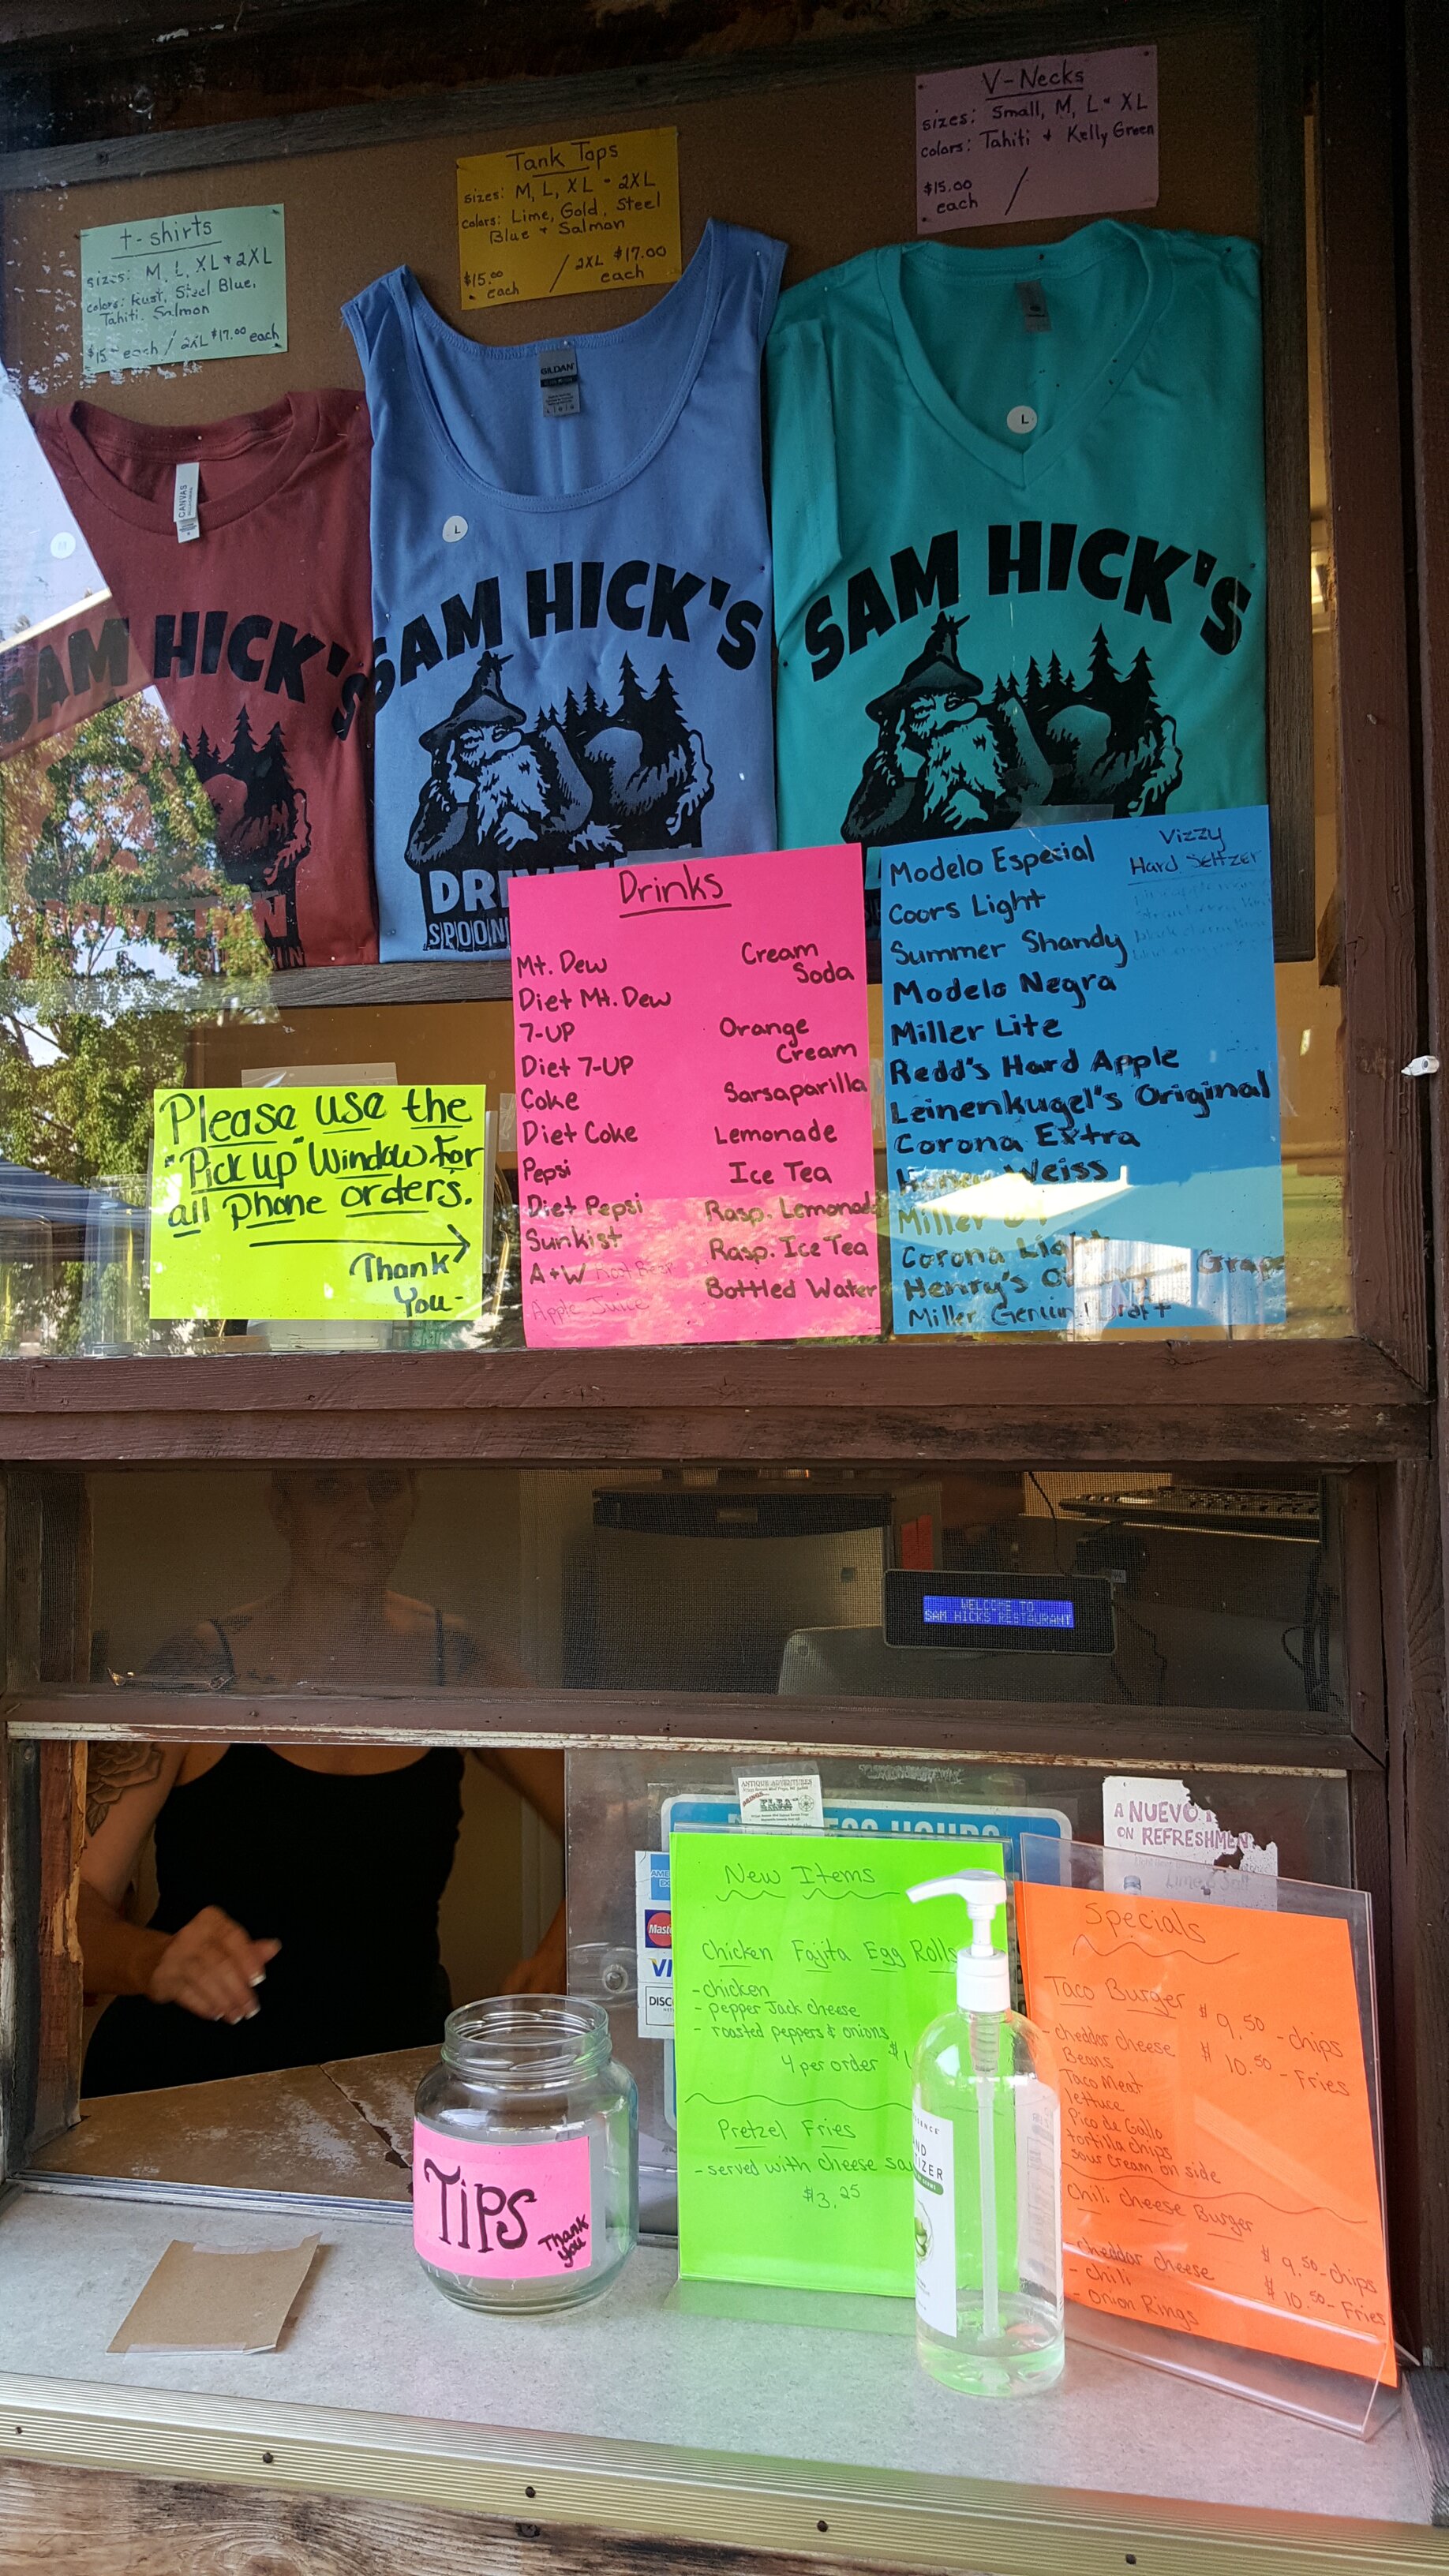 V-Necks
sizes: Small, M, L + XL
colors: Tahiti + Kelly Green
$15.00 each /
Tank Tops
sizes: M, L, XL + 2XL
colors: Lime, Gold, Steel
Blue + Salmon
$15.00 each / 2XL $17.00 each
t-shirts
sizes: M, L, XL + 2XL
colors: Rust, Steel Blue,
Tahiti, Salmon
each / 2XL $17.00 each
CANVAS
GILDAN
L
L
SAM HICK'S
SAM HICK'S
SAM HICK'S
DRIVE INN
SPOON
Please use the
"Pick up" Window for
all phone orders.
Thank
You-
Drinks
Mt. Dew
Diet Mt. Dew
7-UP
Diet 7-UP
Coke
Diet Coke
Pepsi
Diet Pepsi
Sunkist
A+W Root Beer
Apple Juice
Cream
Soda
Orange
Cream
Sarsaparilla
Lemonade
Ice Tea
Rasp. Lemonade
Rasp. Ice Tea
Bottled Water
Modelo Especial
Coors Light
Summer Shandy
Modelo Negra
Miller Lite
Redd's Hard Apple
Leinenkugel's Original
Corona Extra
Honey Weiss
Miller
Corona Light
Henry's Grape
Miller Genuine Draft
Vizzy
Hard Seltzer
WELCOME TO
SAM HICKS RESTAURANT
ANTIQUE ADVENTURES
FLEA
HOURS
A NUEVO
ON REFRESHMEN
VI
DISC
New Items
Chicken Fajita Egg Rolls
- chicken
- pepper Jack cheese
- roasted peppers & onions
4 per order $
Pretzel Fries
- served with cheese
$3.25
Specials
Taco Burger $9.50 - chips
$10.50 - Fries
- cheddar cheese
Beans
Taco Meat
lettuce
Pico de Gallo
tortilla chips
sour cream on side
Chili cheese Burger
- cheddar cheese $9.50 - chips
- chili $10.50 - Fries
- Onion Rings
TIPS
Thank
you